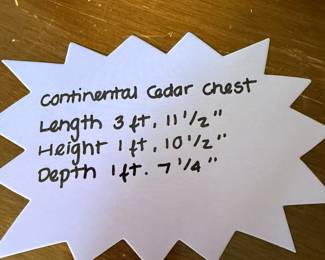 Continental Cedar Chest
Length 3 ft. 11 1/2"
Height 1 ft. 10 1/2"
Depth 1 ft. 7 1/4"